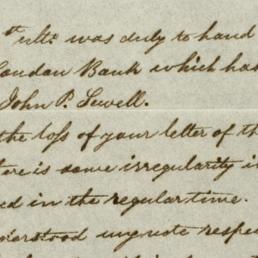 th ulto was duly to hand
London Bank which has
John P. Sewell.
the loss of your letter of th
ere is some irregularity i
ed in the regular time.
nderstood my note respe